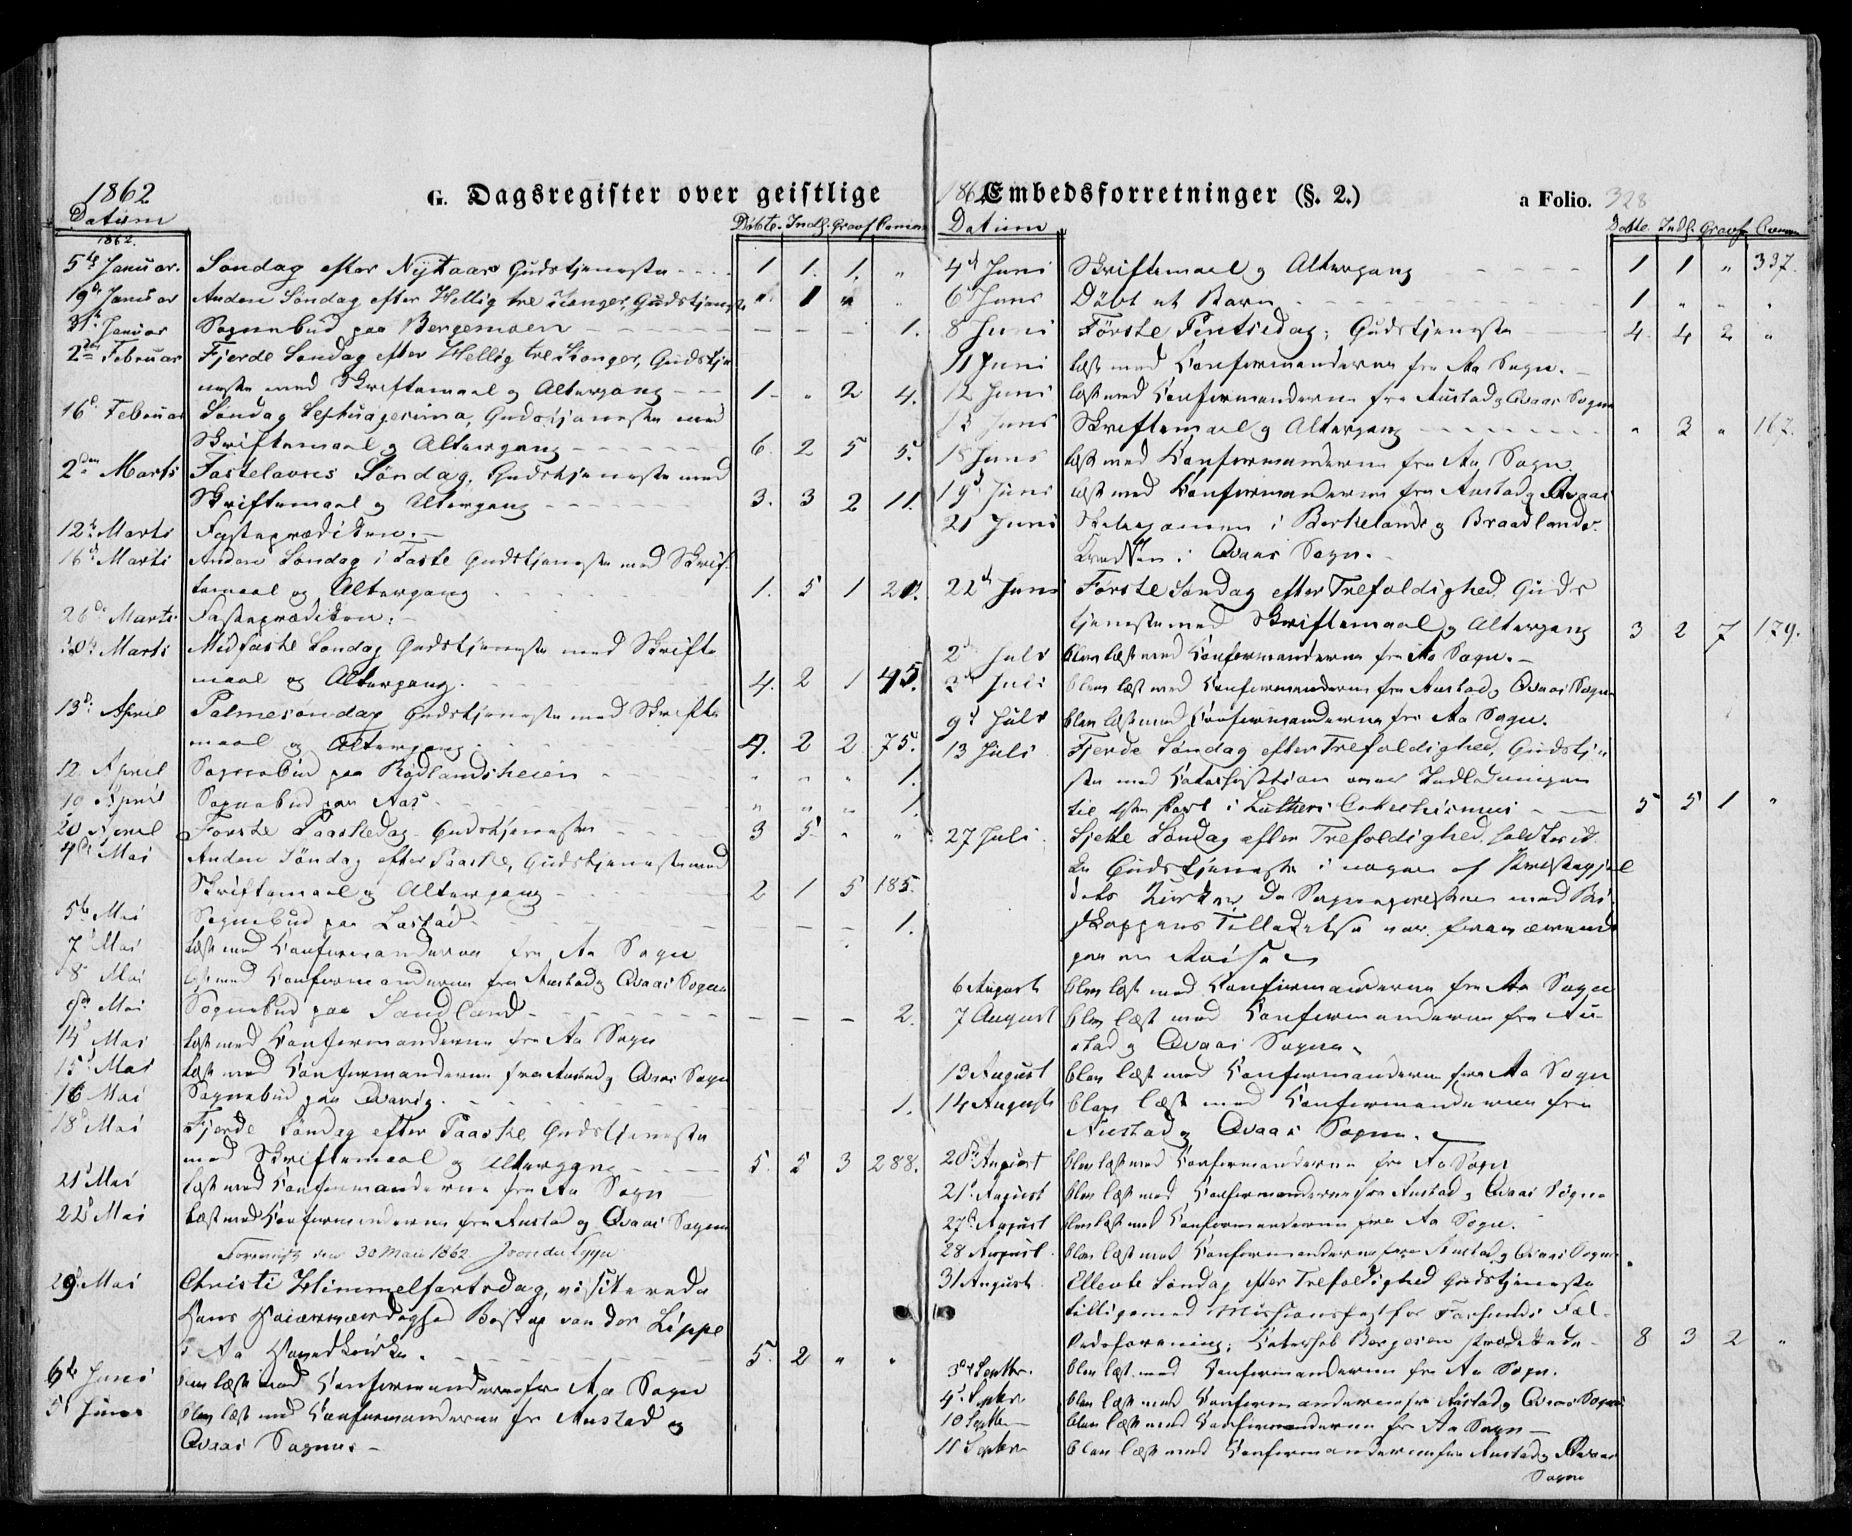 1862
G. Dagsregister over geistlige
Datum Döbte. Indl. Graaf. Comm.
1862.
5te Januar. Søndag efter Nytaar Gudstjeneste - - - 1 1. 1. "
19de Januar Anden Søndag efter Hellig tre Konger, Gudstjeneste " 1 " "
31te Januar Sognebud paa Bergemoen - - - - - - - 1.
2den Februar Fjerde Søndag efter Hellig tre Konger, Gudstje
neste med Skriftemaal og Altergang - - 1 - " 2 4.
16de Februar Søndag Septuagesima, Gudstjeneste med
Skriftemaal og Altergang - - - - - 6. 2 5 5.
2den Marts Fastelavns Søndag, Gudstjeneste med
Skriftemaal og Altergang - - - - - - 3. 3 2 11.
12te Marts Fasteprædiken. -
16de Marts Anden Søndag i Faste Gudstjeneste med Skrif-
temaal og Altergang 1. 5 1 20.
26de Marts Fasteprædiken.
30te Marts Midfaste Søndag Gudstjeneste med Skrifte
maal og Altergang. 4. 2 1 45.
13de April Palmesøndag Gudstjeneste med Skrifte
maal og Altergang 4. 2 2 75.
12 April Sognebud paa Rødlandsheien " " " 1.
19 April Sognebud paa Aas " " " 1.
20 April Første Paaskedag Gudstjeneste 3 5 " "
4de Mai Anden Søndag efter Paaske, Gudstjeneste med
Skriftemaal og Altergang - - - 2 1 5 185.
5te Mai Sognebud paa Lastad - - - - - - 1.
7 Mai læst med Konfirmanderne fra Aa Sogn
8 Mai læst med Konfirmanderne fra Austad og Qvaas Sogne
9de Mai Sognebud paa Sandland - - - - - - - 2.
14de Mai læst med Konfirmanderne fra Aa Sogn
15de Mai læst med Konfirmanderne fra Austad og Qvaas Sogn
16 Mai Sognebud paa Qvavig. - - - - - - 1.
18de Mai Fjerde Søndag efter Paaske Gudstjeneste
med Skriftemaal og Altergang - - - 5. 5 3 288.
21de Mai læst med Konfirmanderne fra Aa Sogn
22de Mai læst med Konfirmanderne fra Austad og Qvaas Sogne
den 30 Mai 1862
29de Mai Christi Himmelfartsdag, visiterede
Hans Høiærværdighed Biskop von der Lippe
i Aa Hovedkirke. - - - - - - 5. 2 " "
Juni blev læst med Konfirmanderne fra Aa Sogn
5te Juni blev læst med Konfirmanderne fra Austad og
Qvaas Sogne. -
1862 Embedsforretninger (§. 2.) a Folio. 328
Datum Döbte. Indl. Graaf. Comm.
4de Juni Skriftemaal og Altergang - - - - - 1 1 " 337.
6 Juni Döbt et Barn - - - - - - - 1 " " "
8 Juni Første Pintsedag; Gudstjeneste - - - 4. 4 2 "
11 Juni læst med Konfirmanderne fra Aa Sogn. -
12 Juni læst med Konfirmanderne fra Austad og Qvaas Sogne
Juni Skriftemaal og Altergang - - - - - - " 3 " 167.
18 Juni læst med Konfirmanderne fra Aa Sogn.
19de Juni læst med Konfirmanderne fra Austad og Qvaas
21 Juni Skoleexamen i Birkelands og Braadlands-
Kredsen i Qvaas Sogn. -
22de Juni Første Søndag efter Trefoldighed Guds
tjeneste med Skriftemaal og Altergang 3 2 7 179.
2den Juli blev læst med Konfirmanderne fra Aa Sogn. -
3de Juli blev læst med Konfirmanderne fra Austad og Qvaas Sogne
9de Juli blev læst med Konfirmanderne fra Aa Sogn.
13 Juli Fjerde Søndag efter Trefoldighed, Gudstje
ste med Katechisation over Indledningen
til 1ste Part i Luthers Catechismus - - 5 5 1 "
27 Juli Sjette Søndag efter Trefoldighed, holdtes ik
ke Gudstjeneste i nogen af Præstegjel
dets Kirker, da Sognepresten med Bi-
skoppens Tilladelse var fraværende
paa en Reise
6 August blev læst med Konfirmanderne fra Aa Sogn
7 August blev læst med Konfirmanderne fra Au-
stad og Qvaas Sogne.
13 August blev læst med Konfirmanderne fra Aa Sogn
14 August blev læst med Konfirmanderne fra
Austad og Qvaas Sogne. -
20de August blev læst med Konfirmanderne fra Aa Sogn
21de August blev læst med Konfirmanderne fra Austad og Qvaas Sogne
27de August blev læst med Konfirmanderne fra Aa Sogn. -
28 August blev læst med Konfirmanderne fra Austad og Qvaas Sogne
31 August Ellevte Søndag efter Trefoldighed Gudstjeneste
tilligemed Missionsfest for Farsunds Fæl-
ledsforening; Katechet Borgesen prædikede - 8 3 2 "
3de Septbr. blev læst med Konfirmanderne fra Aa Sogn.
4de Septbr blev læst med Konfirmanderne fra Austad og Qvaas Sogne
10 Septbr blev læst med Konfirmanderne fra Aa Sogn -
11 Septbr blev læst med Konfirmanderne fra Austad og Qvaas
Sogne